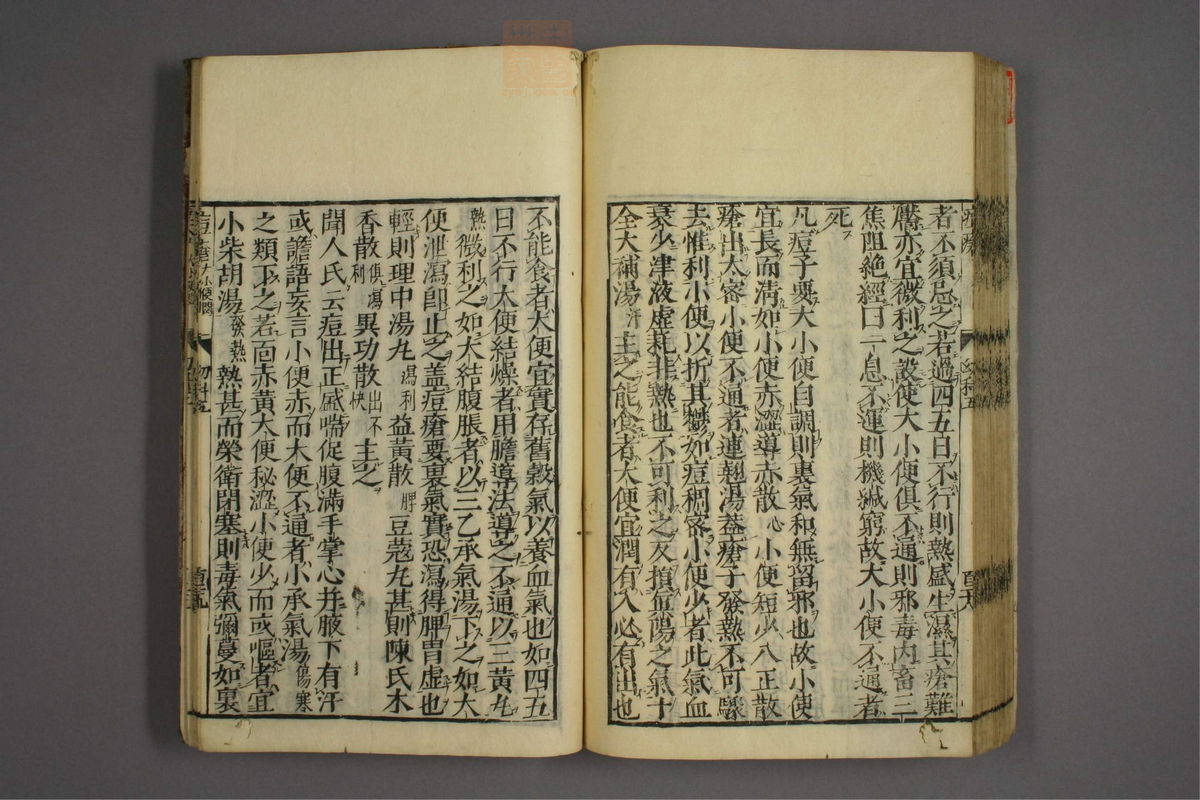 者不須忌之若過四五日不行則熱盛生濕其瘡難
靨亦宜微利之設使大小便俱不通則邪毒内畜三
焦阻絶經曰一息不運則機緘窮故大小便不通者
死
凡痘子要大小便自調則裏氣和無留邪也故小便
宜長而清如小便赤澀導赤散心小便短少八正散
瘡出太密小便不通者連翹湯蓋瘡子發熱不可驟
去惟利小便以折其鬱如痘稠密小便少者此氣血
衰少津液虛耗非熱也不可利之反損氣陽之氣十
全大補湯汗主之能食者大便宜潤有入必有出也
不能食者大便宜實存舊穀氣以養血氣也如四五
日不行大便結燥者用膽導法導之不通以三黃丸
熱微利之如大結腹脹者以三乙承氣湯下之如大
便泄瀉即止之蓋痘瘡要裏氣實恐瀉得脾胃虚也
輕則理中湯丸瀉利益黃散脾豆蔻丸甚則陳氏木
香散俱瀉利異功散出不快主之
聞人氏云痘出正盛喘促腹滿手掌心并腋下有汗
或譫語妄言小便赤而大便不通者小承氣湯傷寒
之類下之若面赤黃大便秘澀小便少而或嘔者宜
小柴胡湯發熱熱甚而榮衛閉塞則毒氣彌蔓如裏